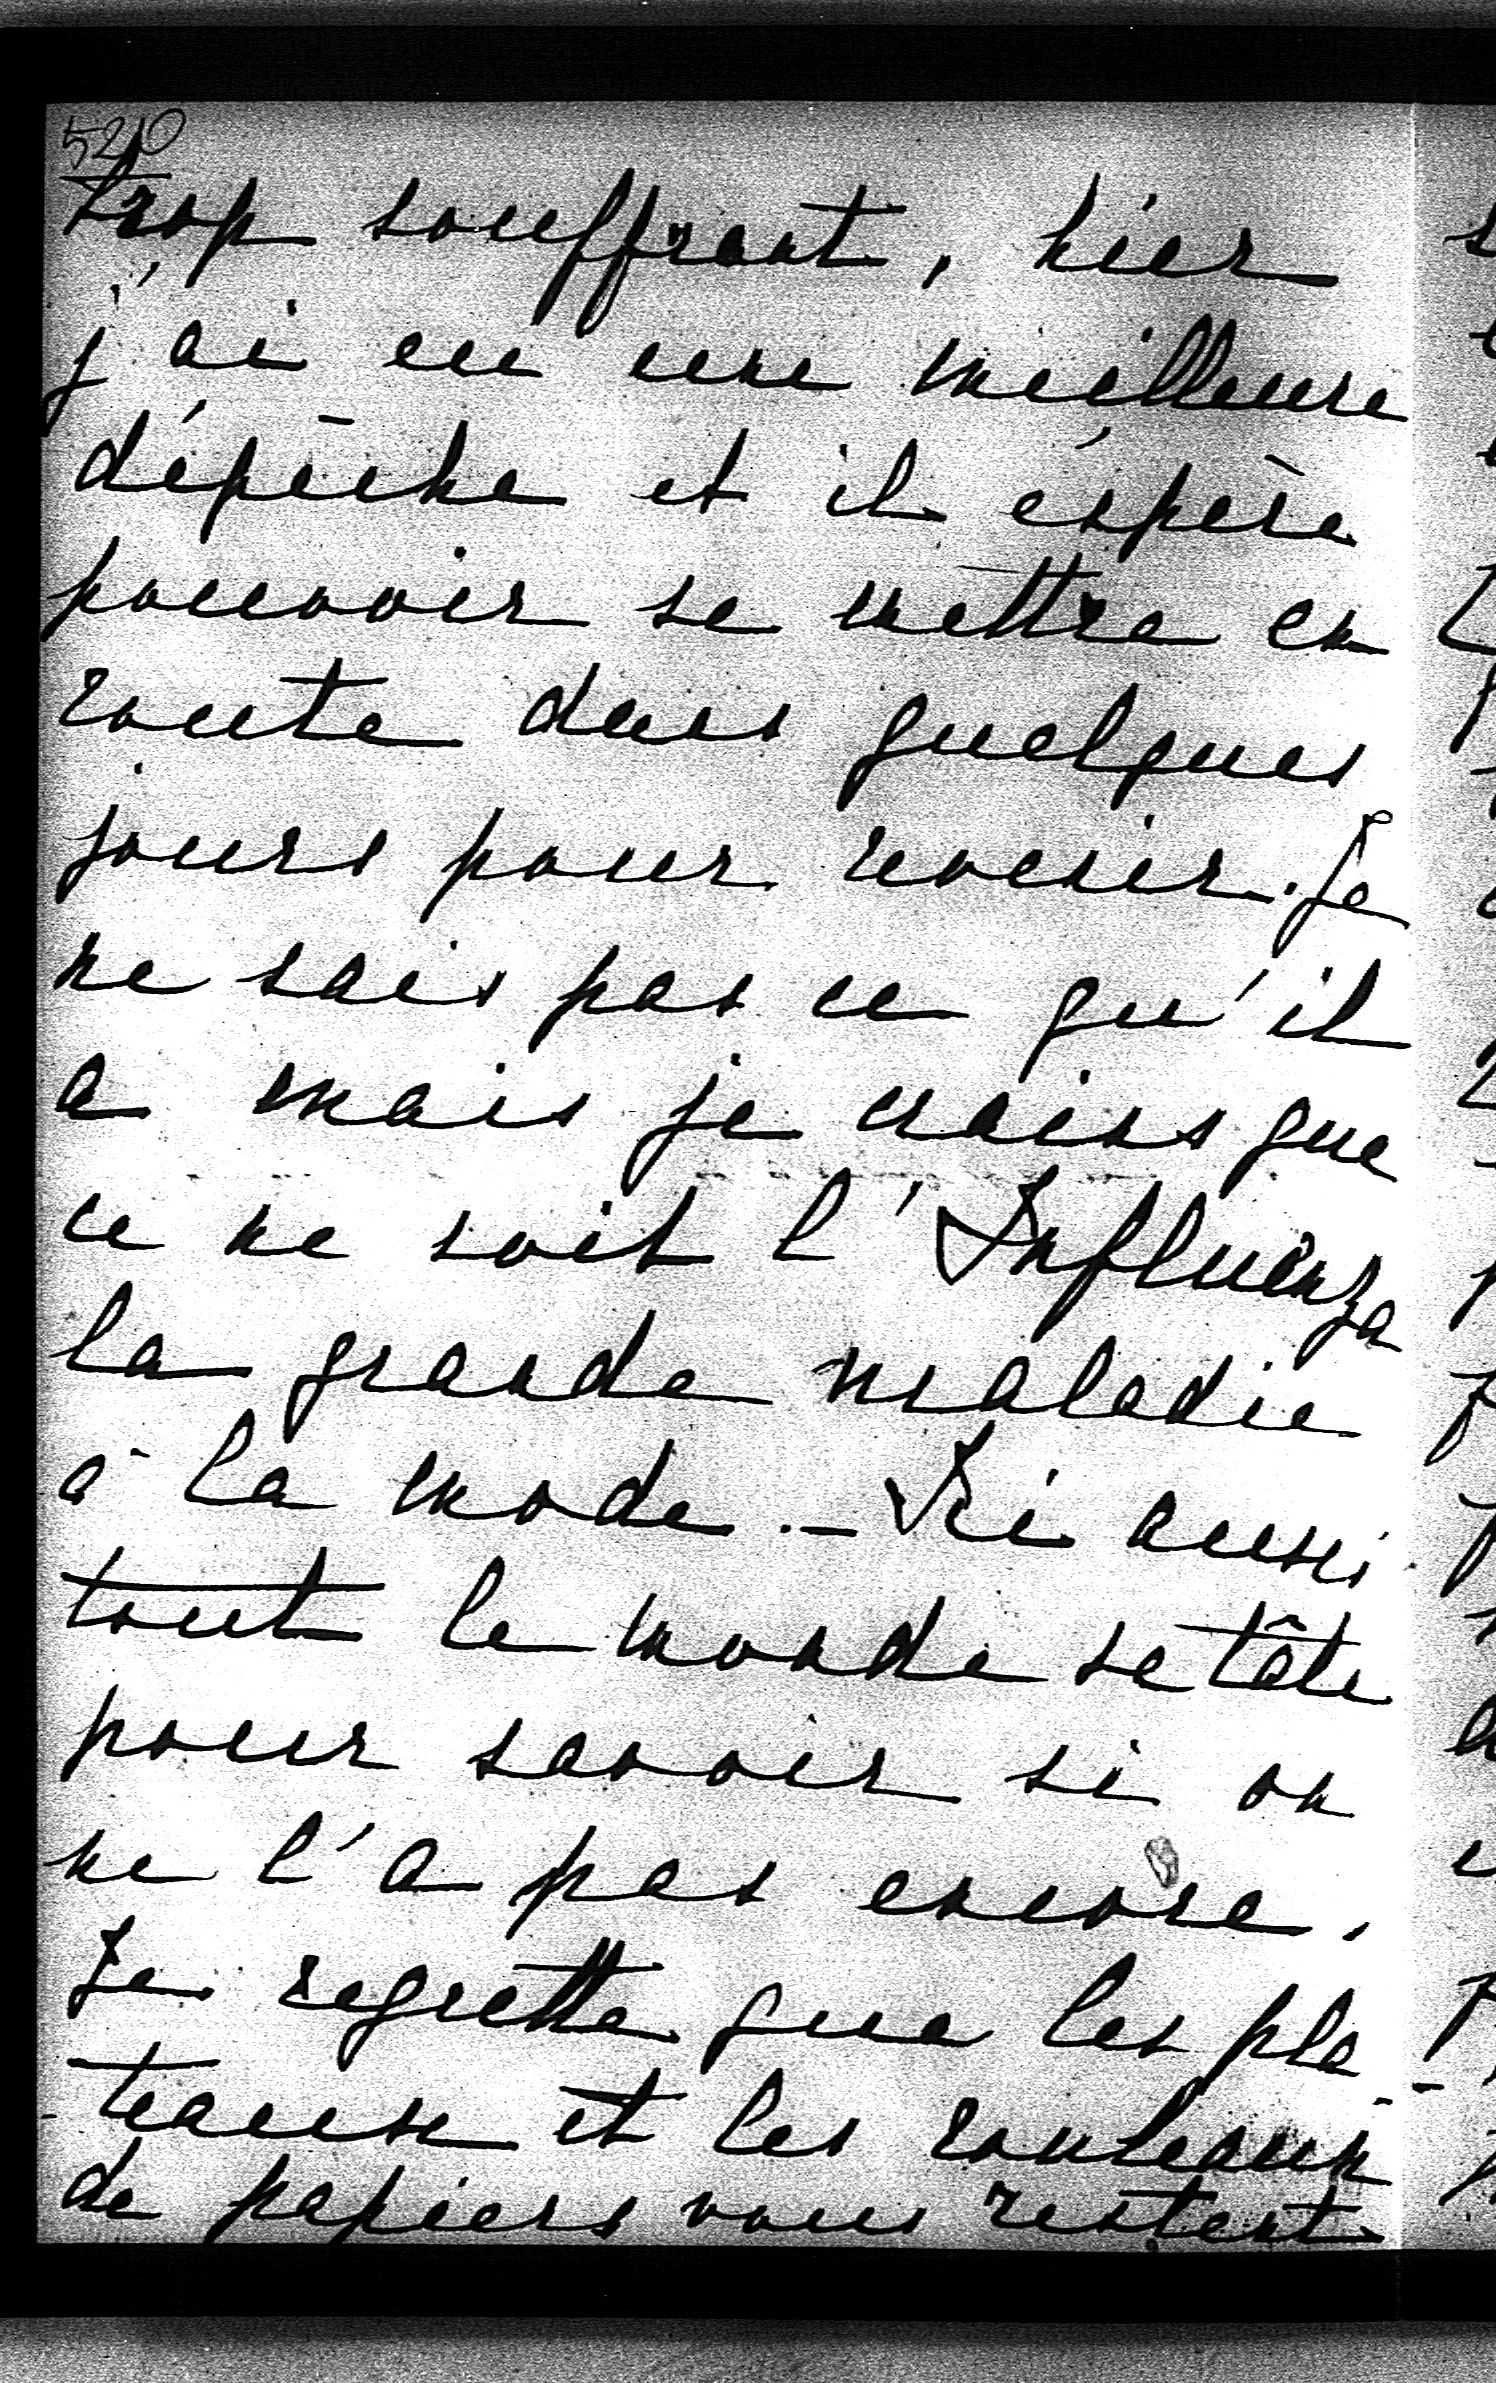 520
trop souffrant, hier
j'ai eu une meilleure
dépêche et il éspère
pouvoir se mettre en
route dans quelques
jours pour revenir. Je
ne sais pas ce qu'il
a mais je crains que
ce ne soit l'Influenza
la grande maladie
à la mode. - Ici aussi
tout le monde se tâte
pour savoir si on
ne l'a pas encore.
Je regrette que les pla-
-teaux et les rouleaux
de papiers vous restent